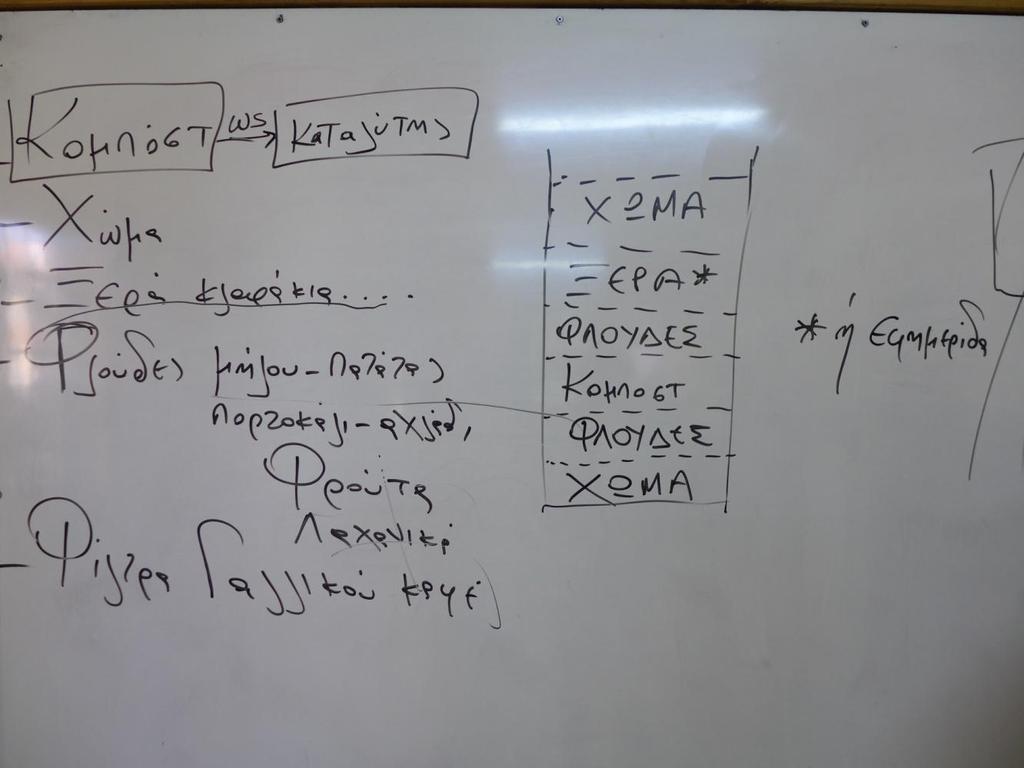 Κομπόστ ως → καταλύτης
- Χώμα
- Ξερά κλαράκια....
- Φλούδες μήλου - πατάτας
πορτοκάλι - αχλάδ,
Φρούτα
Λαχανικά
- Φίλτρα Γαλλικού καφέ
ΧΩΜΑ
ΞΕΡΑ*
ΦΛΟΥΔΕΣ
Κομποστ
ΦΛΟΥΔΕΣ
ΧΩΜΑ
* ή Εφημερίδα